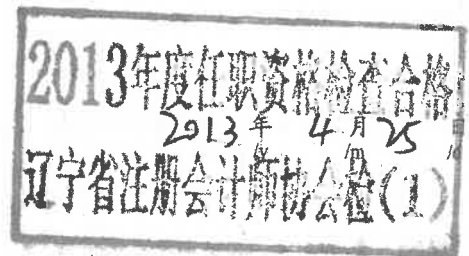 2013年度任职资格检查合格
2013年 4月25日
辽宁省注册会计师协会检(1)